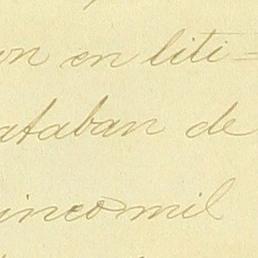 on en liti=
ataban de
incomil